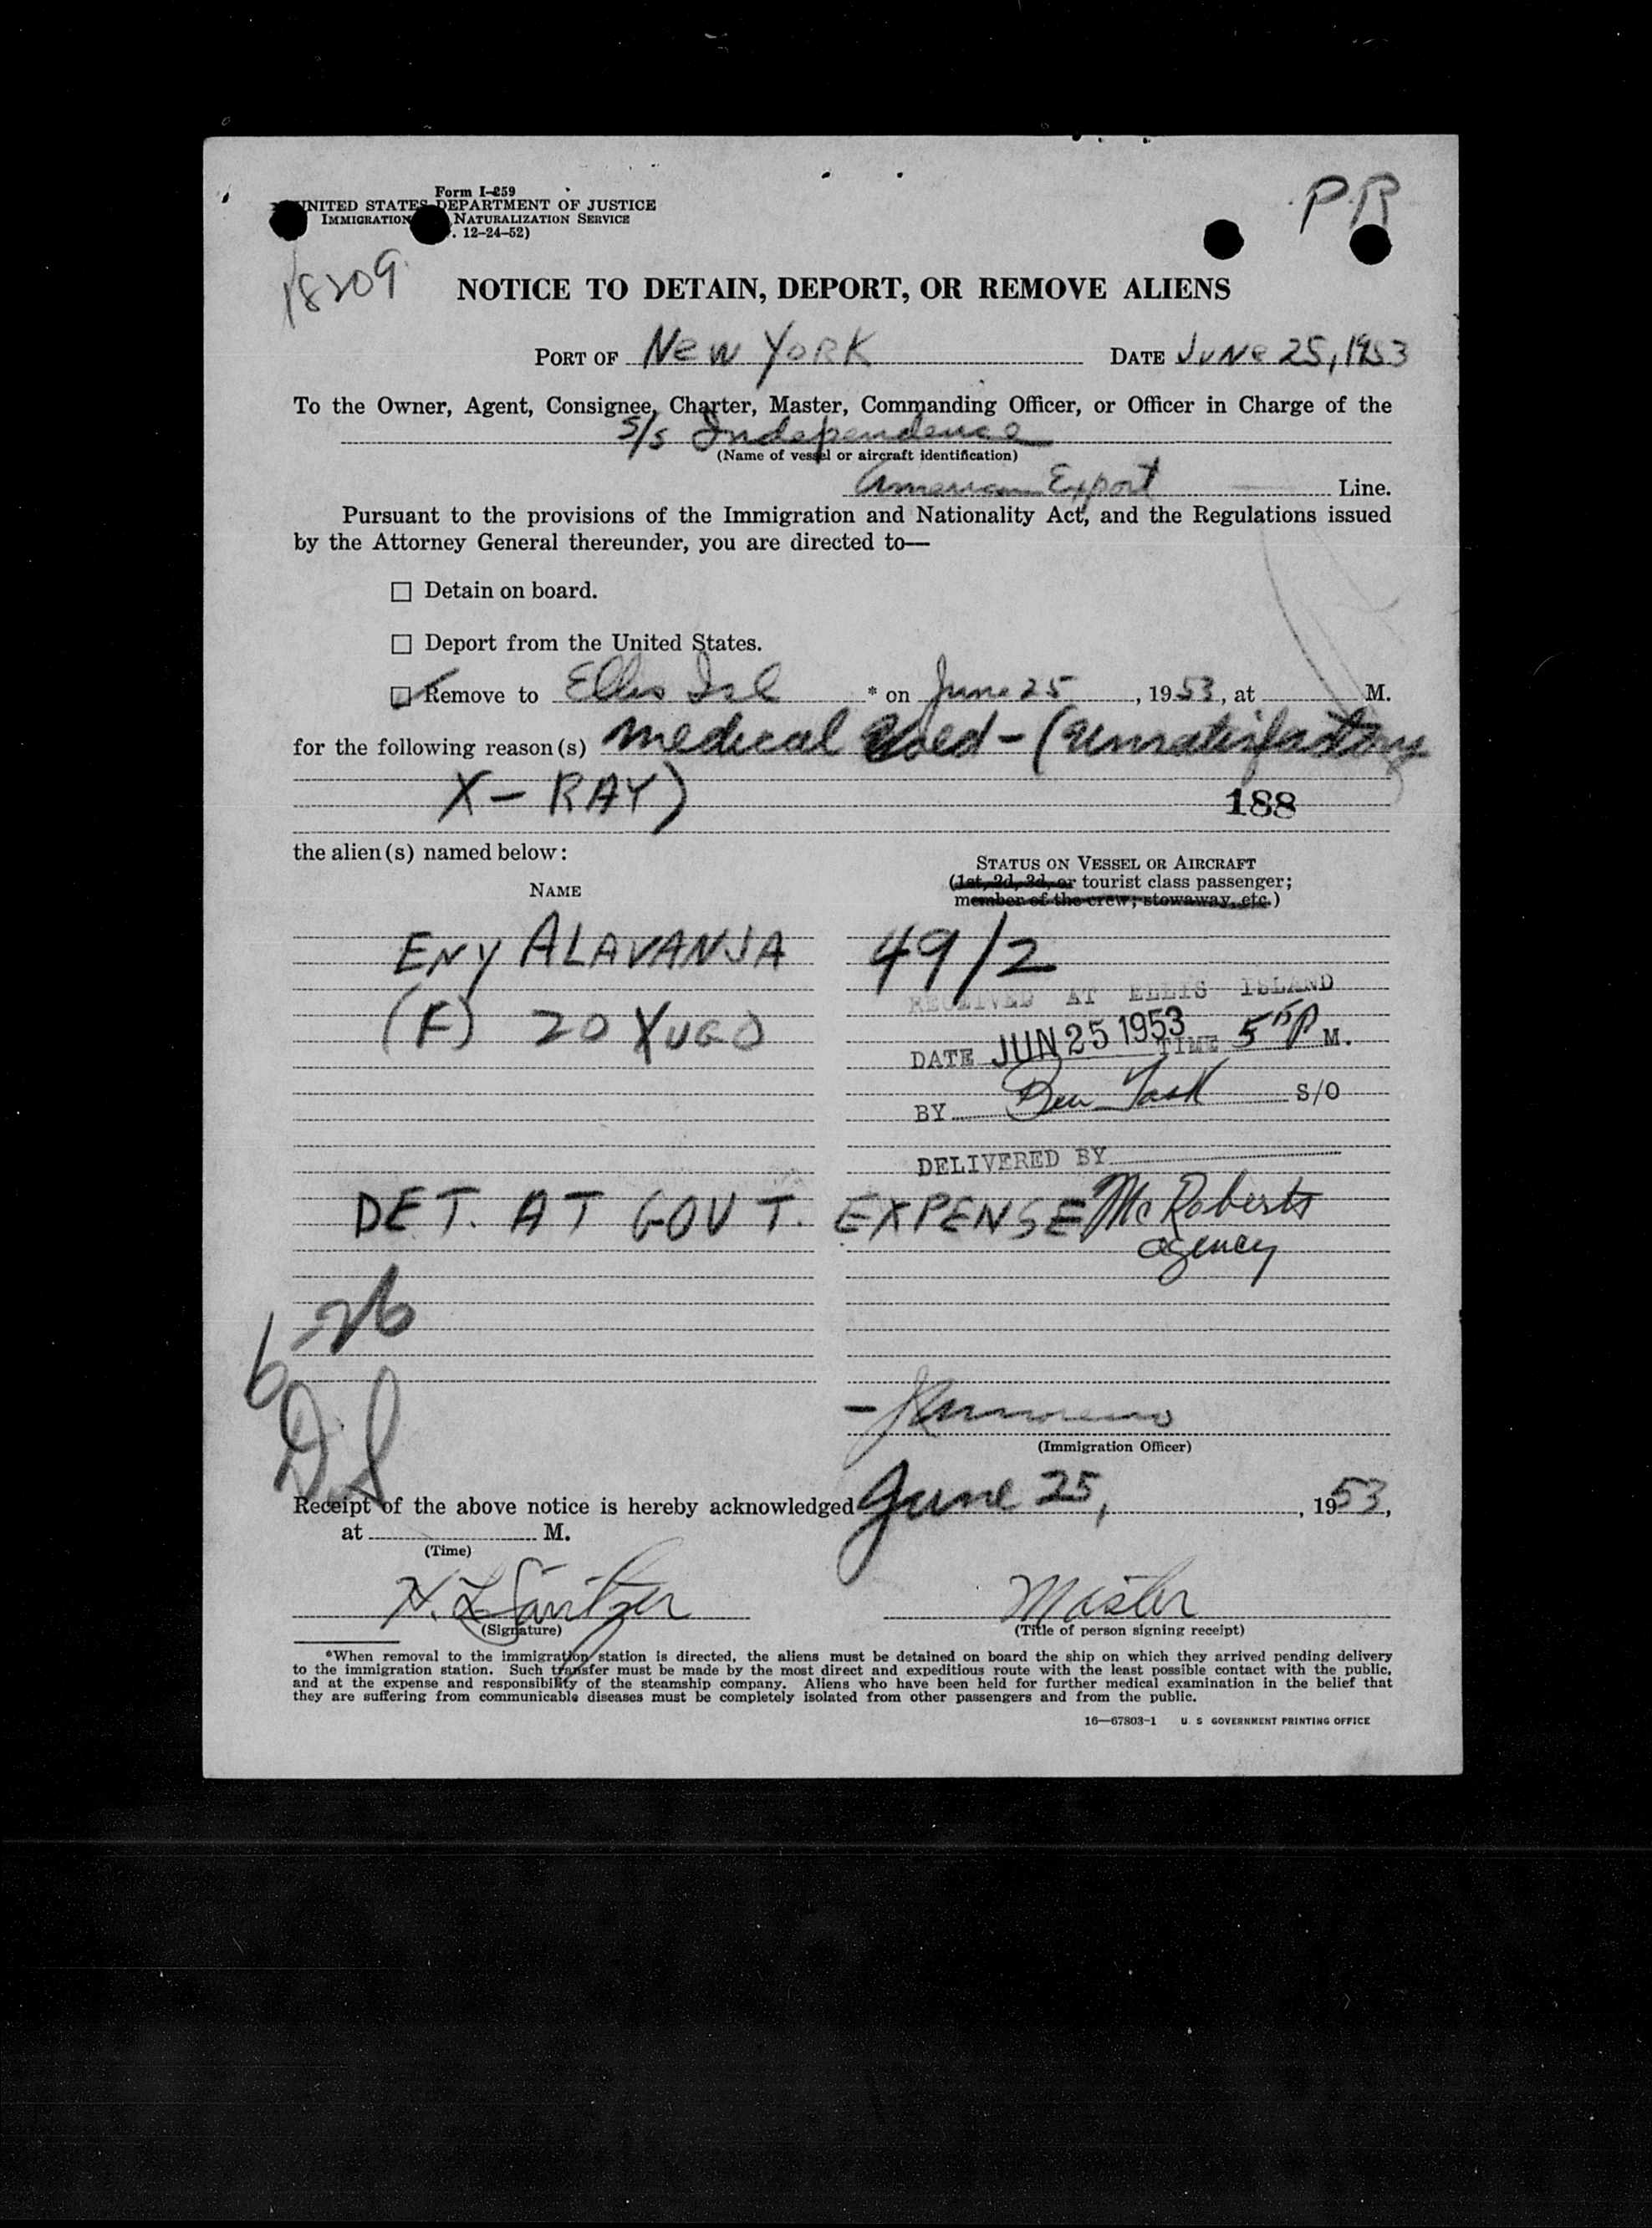 Form I-259
UNITED STATES DEPARTMENT OF JUSTICE
IMMIGRATION NATURALIZATION SERVICE
. 12-24-52)
P.R
18209
NOTICE TO DETAIN, DEPORT, OR REMOVE ALIENS
PORT OF New YORK DATE JUNE 25, 1953
To the Owner, Agent, Consignee, Charter, Master, Commanding Officer, or Officer in Charge of the
S/S Independence
(Name of vessel or aircraft identification)
American Export Line.
Pursuant to the provisions of the Immigration and Nationality Act, and the Regulations issued
by the Attorney General thereunder, you are directed to—
☐ Detain on board.
☐ Deport from the United States.
☐ Remove to Ellis Isl * on June 25, 1953, at M.
for the following reason(s) medical - (Unsatisfactory
X-RAY)
188
the alien(s) named below:
STATUS ON VESSEL OR AIRCRAFT
NAME
(1st, 2d, 3d, or tourist class passenger;
member of the crew; stowaway, etc.)
ENY ALAVANJA 49/2
RECEIVED AT ELLIS ISLAND
(F) 20 YUGO
DATE JUN 25 1953 TIME 5 P M.
BY Ben S/O
DELIVERED BY
DET. AT GOVT. EXPENSE McRoberts
agency
6 26
(Immigration Officer)
Receipt of the above notice is hereby acknowledged June 25, , 1953,
at M.
(Time)
H. L. Master
(Signature) (Title of person signing receipt)
*When removal to the immigration station is directed, the aliens must be detained on board the ship on which they arrived pending delivery
to the immigration station. Such transfer must be made by the most direct and expeditious route with the least possible contact with the public,
and at the expense and responsibility of the steamship company. Aliens who have been held for further medical examination in the belief that
they are suffering from communicable diseases must be completely isolated from other passengers and from the public.
16—67803-1 U. S. GOVERNMENT PRINTING OFFICE